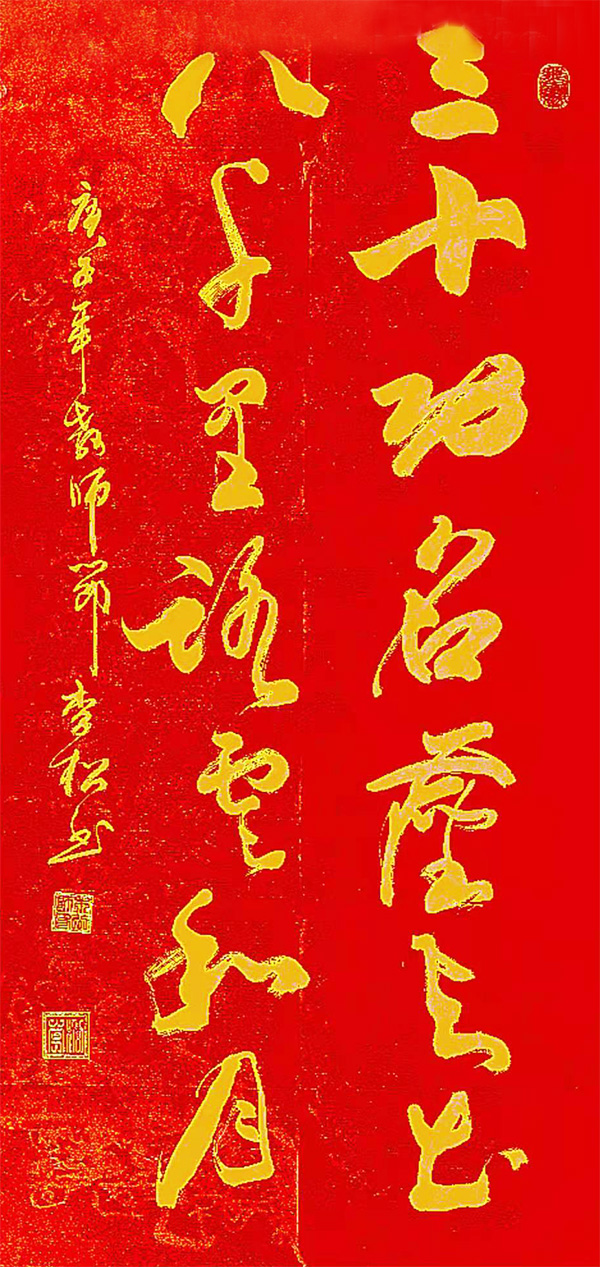 三十功名塵与土
八千里路雲和月
庚子年教师節李松书